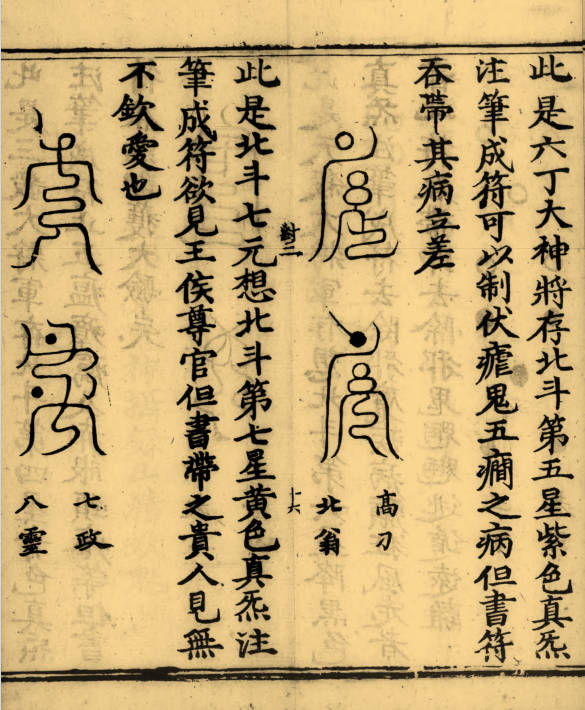 此是六丁大神將存北斗第五星紫色真炁
注筆成符可以制伏瘧鬼五癎之病但書符
吞帶其病立差
高刀
北翁
對二
十六
此是北斗七元想北斗第七星黃色真炁注
筆成符欲見王侯尊官但書帶之貴人見無
不欽愛也
七政
八靈